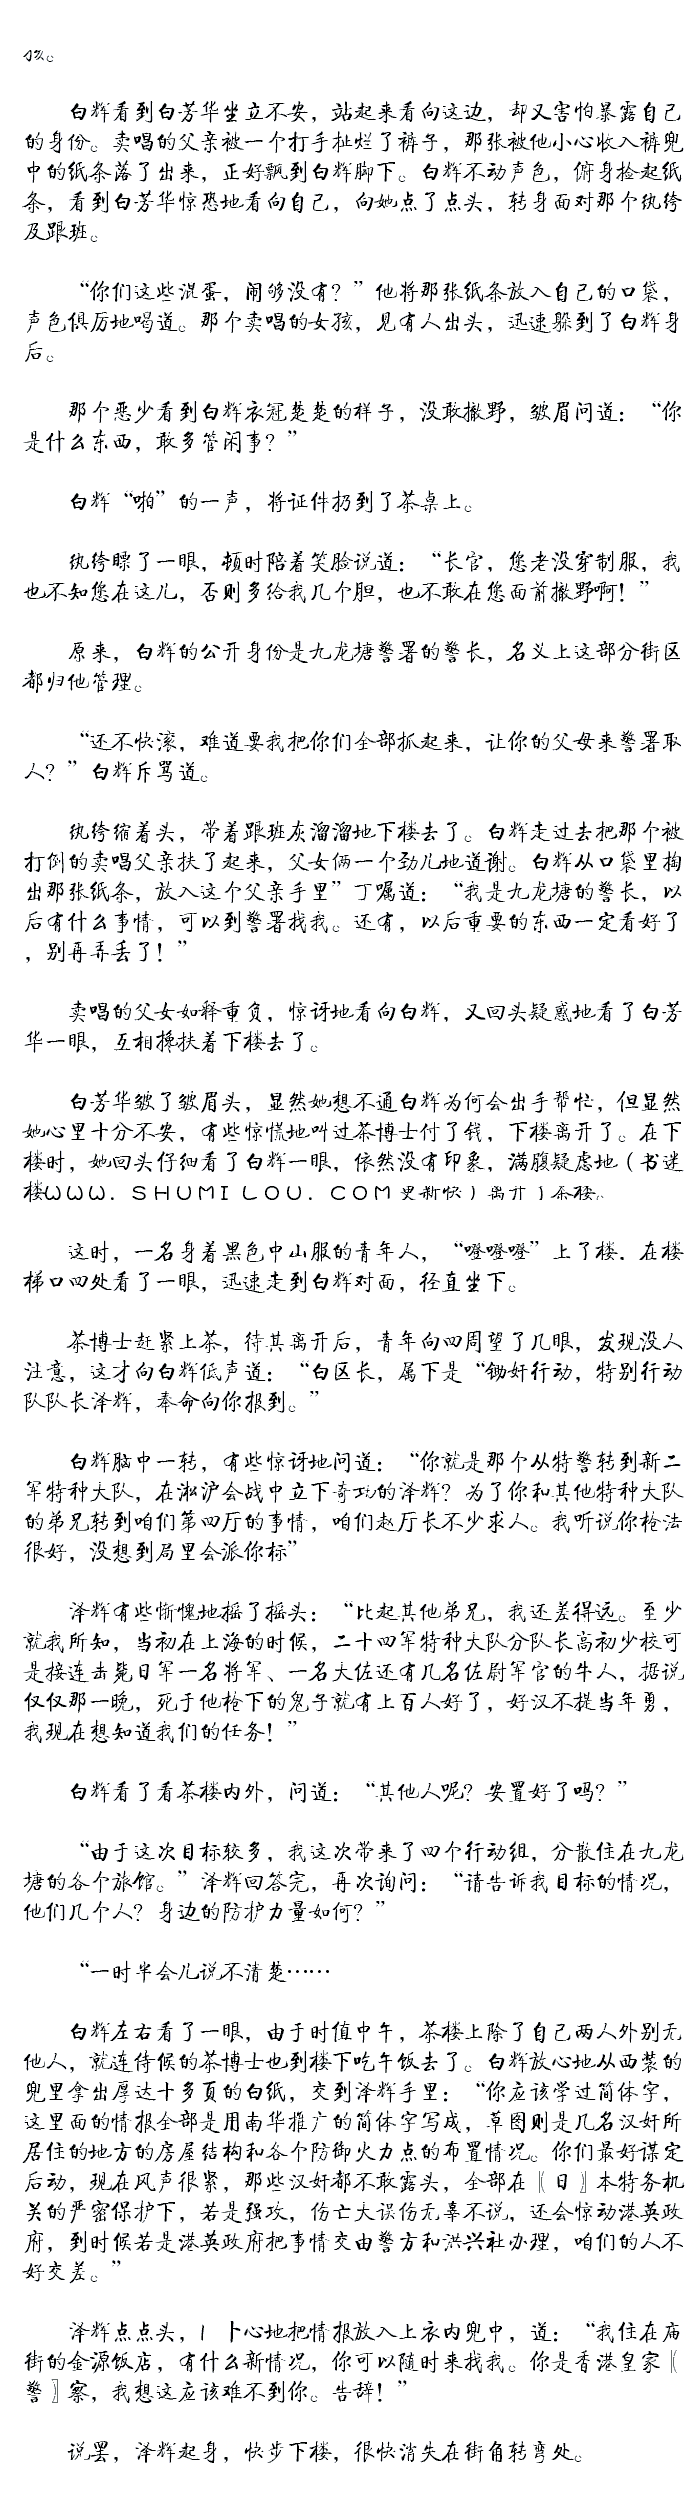 白辉看到白芳华坐立不安，站起来看向这边，却又害怕暴露自己
的身份。卖唱的父亲被一个打手扯烂了裤子，那张被他小心收入裤兜
中的纸条落了出来，正好飘到白辉脚下。白辉不动声色，俯身捡起纸
条，看到白芳华惊恐地看向自己，向她点了点头，转身面对那个纨绔
及跟班。
“你们这些混蛋，闹够没有？”他将那张纸条放入自己的口袋，
声色俱厉地喝道。那个卖唱的女孩，见有人出头，迅速躲到了白辉身
后。
那个恶少看到白辉衣冠楚楚的样子，没敢撒野，皱眉问道：“你
是什么东西，敢多管闲事？”
白辉“啪”的一声，将证件扔到了茶桌上。
纨绔瞟了一眼，顿时陪着笑脸说道：“长官，您老没穿制服，我
也不知您在这儿，否则多给我几个胆，也不敢在您面前撒野啊！”
原来，白辉的公开身份是九龙塘警署的警长，名义上这部分街区
都归他管理。
“还不快滚，难道要我把你们全部抓起来，让你的父母来警署取
人？”白辉斥骂道。
纨绔缩着头，带着跟班灰溜溜地下楼去了。白辉走过去把那个被
打倒的卖唱父亲扶了起来，父女俩一个劲儿地道谢。白辉从口袋里掏
出那张纸条，放入这个父亲手里”丁嘱道：“我是九龙塘的警长，以
后有什么事情，可以到警署找我。还有，以后重要的东西一定看好了
，别再弄丢了！”
卖唱的父女如释重负，惊讶地看向白辉，又回头疑惑地看了白芳
华一眼，互相搀扶着下楼去了。
白芳华皱了皱眉头，显然她想不通白辉为何会出手帮忙，但显然
她心里十分不安，有些惊慌地叫过茶博士付了钱，下楼离开了。在下
楼时，她回头仔细看了白辉一眼，依然没有印象，满腹疑虑地（书迷
楼WWW．ＳＨＵＭＩＬＯＵ．ＣＯＭ更新快）离开了茶楼。
这时，一名身着黑色中山服的青年人，“噔噔噔”上了楼．在楼
梯口四处看了一眼，迅速走到白辉对面，径直坐下。
茶博士赶紧上茶，待其离开后，青年向四周望了几眼，发现没人
注意，这才向白辉低声道：“白区长，属下是“锄奸行动，特别行动
队队长泽辉，奉命向你报到。”
白辉脑中一转，有些惊讶地问道：“你就是那个从特警转到新二
军特种大队，在淞沪会战中立下奇功的泽辉？为了你和其他特种大队
的弟兄转到咱们第四厅的事情，咱们赵厅长不少求人。我听说你枪法
很好，没想到局里会派你标”
泽辉有些惭愧地摇了摇头：“比起其他弟兄，我还差得远。至少
就我所知，当初在上海的时候，二十四军特种大队分队长高初少校可
是接连击毙日军一名将军、一名大佐还有几名佐尉军官的牛人，据说
仅仅那一晚，死于他枪下的鬼子就有上百人好了，好汉不提当年勇，
我现在想知道我们的任务！”
白辉看了看茶楼内外，问道：“其他人呢？安置好了吗？”
“由于这次目标较多，我这次带来了四个行动组，分散住在九龙
塘的各个旅馆。”泽辉回答完，再次询问：“请告诉我目标的情况，
他们几个人？身边的防护力量如何？”
“一时半会儿说不清楚……
白辉左右看了一眼，由于时值中午，茶楼上除了自己两人外别无
他人，就连侍候的茶博士也到楼下吃午饭去了。白辉放心地从西装的
兜里拿出厚达十多页的白纸，交到泽辉手里：“你应该学过简体字，
这里面的情报全部是用南华推广的简体字写成，草图则是几名汉奸所
居住的地方的房屋结构和各个防御火力点的布置情况。你们最好谋定
后动，现在风声很紧，那些汉奸都不敢露头，全部在〖日〗本特务机
关的严密保护下，若是强攻，伤亡大误伤无辜不说，还会惊动港英政
府，到时候若是港英政府把事情交由警方和洪兴社办理，咱们的人不
好交差。”
泽辉点点头，ｌ卜心地把情报放入上衣内兜中，道：“我住在庙
街的金源饭店，有什么新情况，你可以随时来找我。你是香港皇家〖
警〗察，我想这应该难不到你。告辞！”
说罢，泽辉起身，快步下楼，很快消失在街角转弯处。